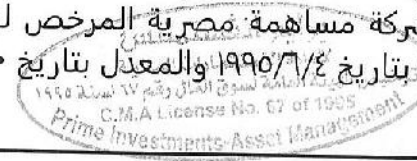 شركة مساهمة مصرية المرخص
بتاريخ ١٩٩٥/٦/٤ والمعدل بتاريخ
العامة لسوق المال رقم ٦٧ لسنة ١٩٩٥
C.M.A License No. 67 of 1995
Prime Investments-Asset Management